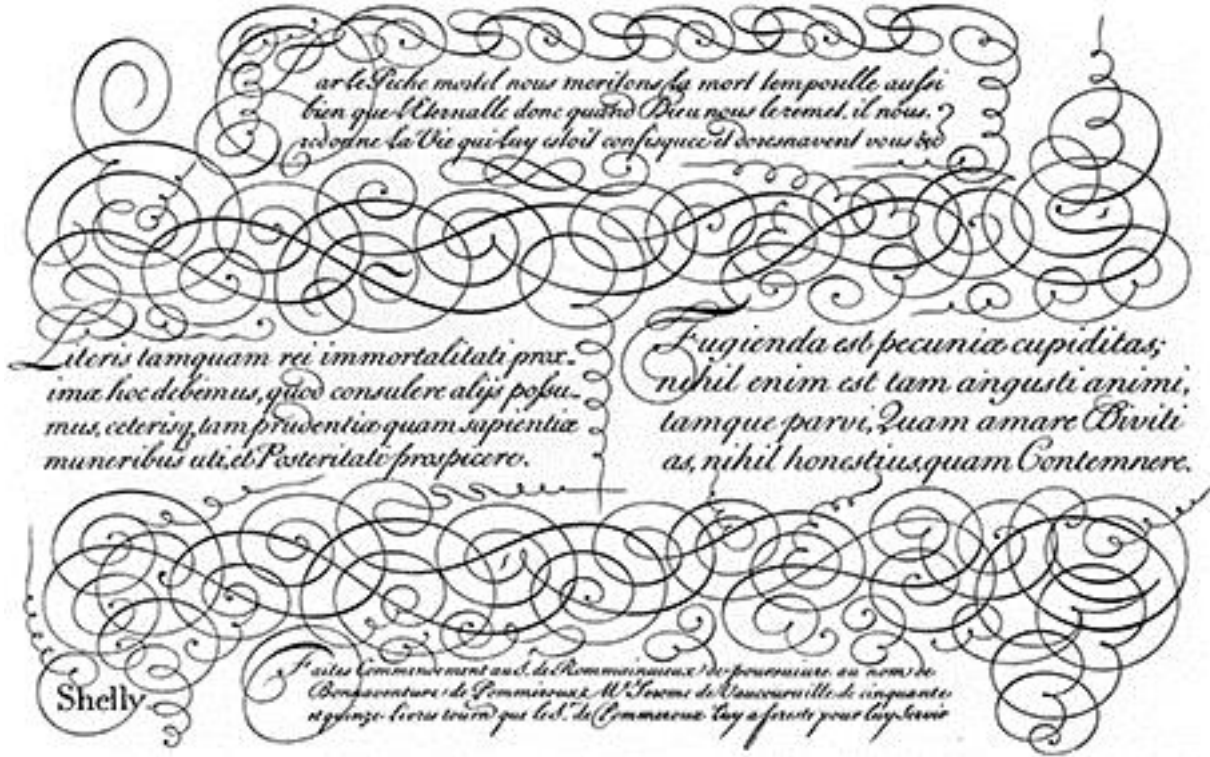 ar le Peche mortel nous meritons la mort temporelle aussi
bien que l'Eternalle donc quand Dieu nous le remet, il nous
redonne la Vie qui luy estoit confisquee et doresnavent vous
Literis tamquam rei immortalitati prox-
imæ hoc debemus, quod consulere alijs possu-
mus, ceterisq, tam prudentiæ quam sapientiæ
muneribus uti, et Posteritate prospicere.
Fugienda est pecuniæ cupiditas;
nihil enim est tam angusti animi,
tamque parvi, Quam amare Diviti
as, nihil honestius, quam Contemnere.
Faites Commendement au S. de de poursuivre au nom de
Bonnaventure de de cinquante
et quinze livres tourn que le S.r de luy a preste pour luy servir
Shelly